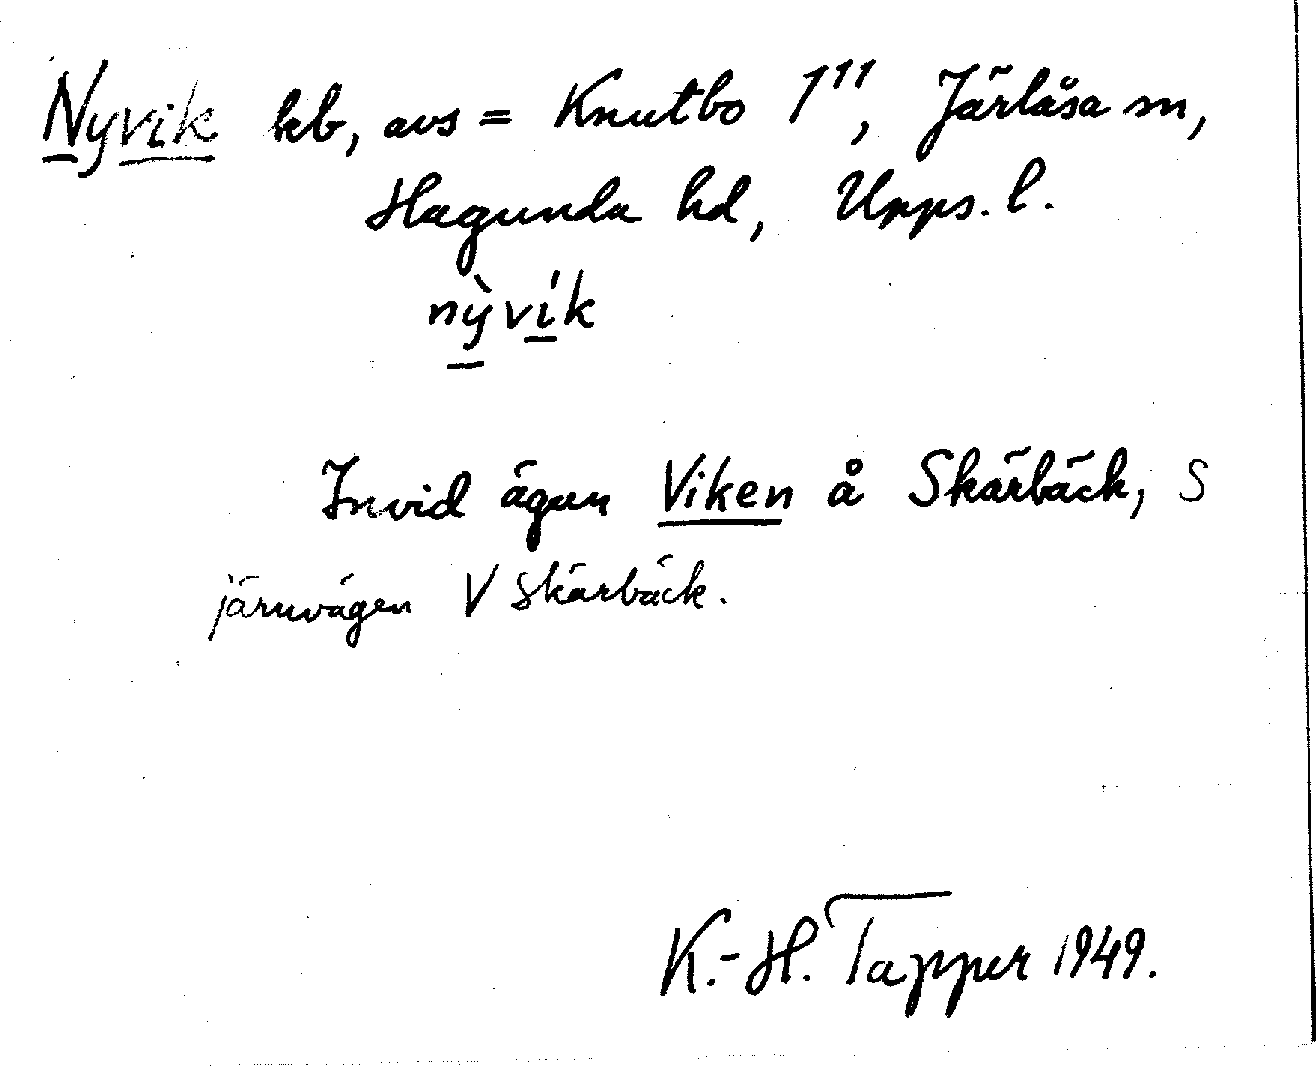 Nyvik kb, avs = Knutbo 1¹¹, Järlåsa sn,
Hagunda hd, Upps. l.
nỳvík
Invid ägon Viken å Skärbäck, S
järnvägen V Skärbäck.
K.-H. Tapper 1949.